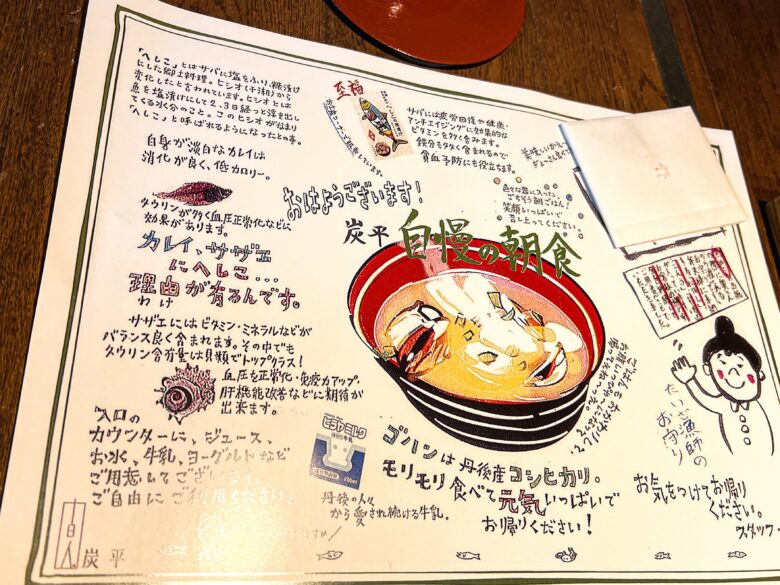 「へしこ」とはサバに塩をふり、糠漬け
にした郷土料理。ヒシオ(干潮)から
変化したと言われています。ヒシオとは
魚を塩漬けにして2、3日経つと浮き出し
てくる水分のこと。このヒシオが訛まり
「へしこ」と呼ばれるようになったとの事。
自身が淡白なカレイは
消化が良く、低カロリー。
タウリンが多く血圧正常化などに
効果があります。
カレイ、サザエ
にへしこ…
理由が有るんです。
わけ
サザエにはビタミン・ミネラルなどが
バランス良く含まれます。その中でも
タウリン含有量は貝類でトップクラス!
血圧を正常化・免疫力アップ・
肝機能改善などに期待が
出来ます。
入口の
カウンターに、ジュース、
お水、牛乳、ヨーグルトなど
ご用意してございます。
ご自由にご利用ください。
炭平
至福
サバには疲労回復や健康・
アンチエイジングに効果的な
ビタミンを多く含みます。
鉄分を多く含まれるので
貧血予防にも役立ちます。
おはようございます!
色々な器に入った
ごちそう朝ごはん!
笑顔いっぱいで
召し上ってください。
炭平 自慢の朝食
ヒラヤミルク
丹後の人々
から愛され続ける牛乳。
ゴハンは丹後産コシヒカリ。
モリモリ食べて元気いっぱいで
お帰りください!
たいざ漁師の
お守り
お気をつけてお帰り
ください。
スタッフ